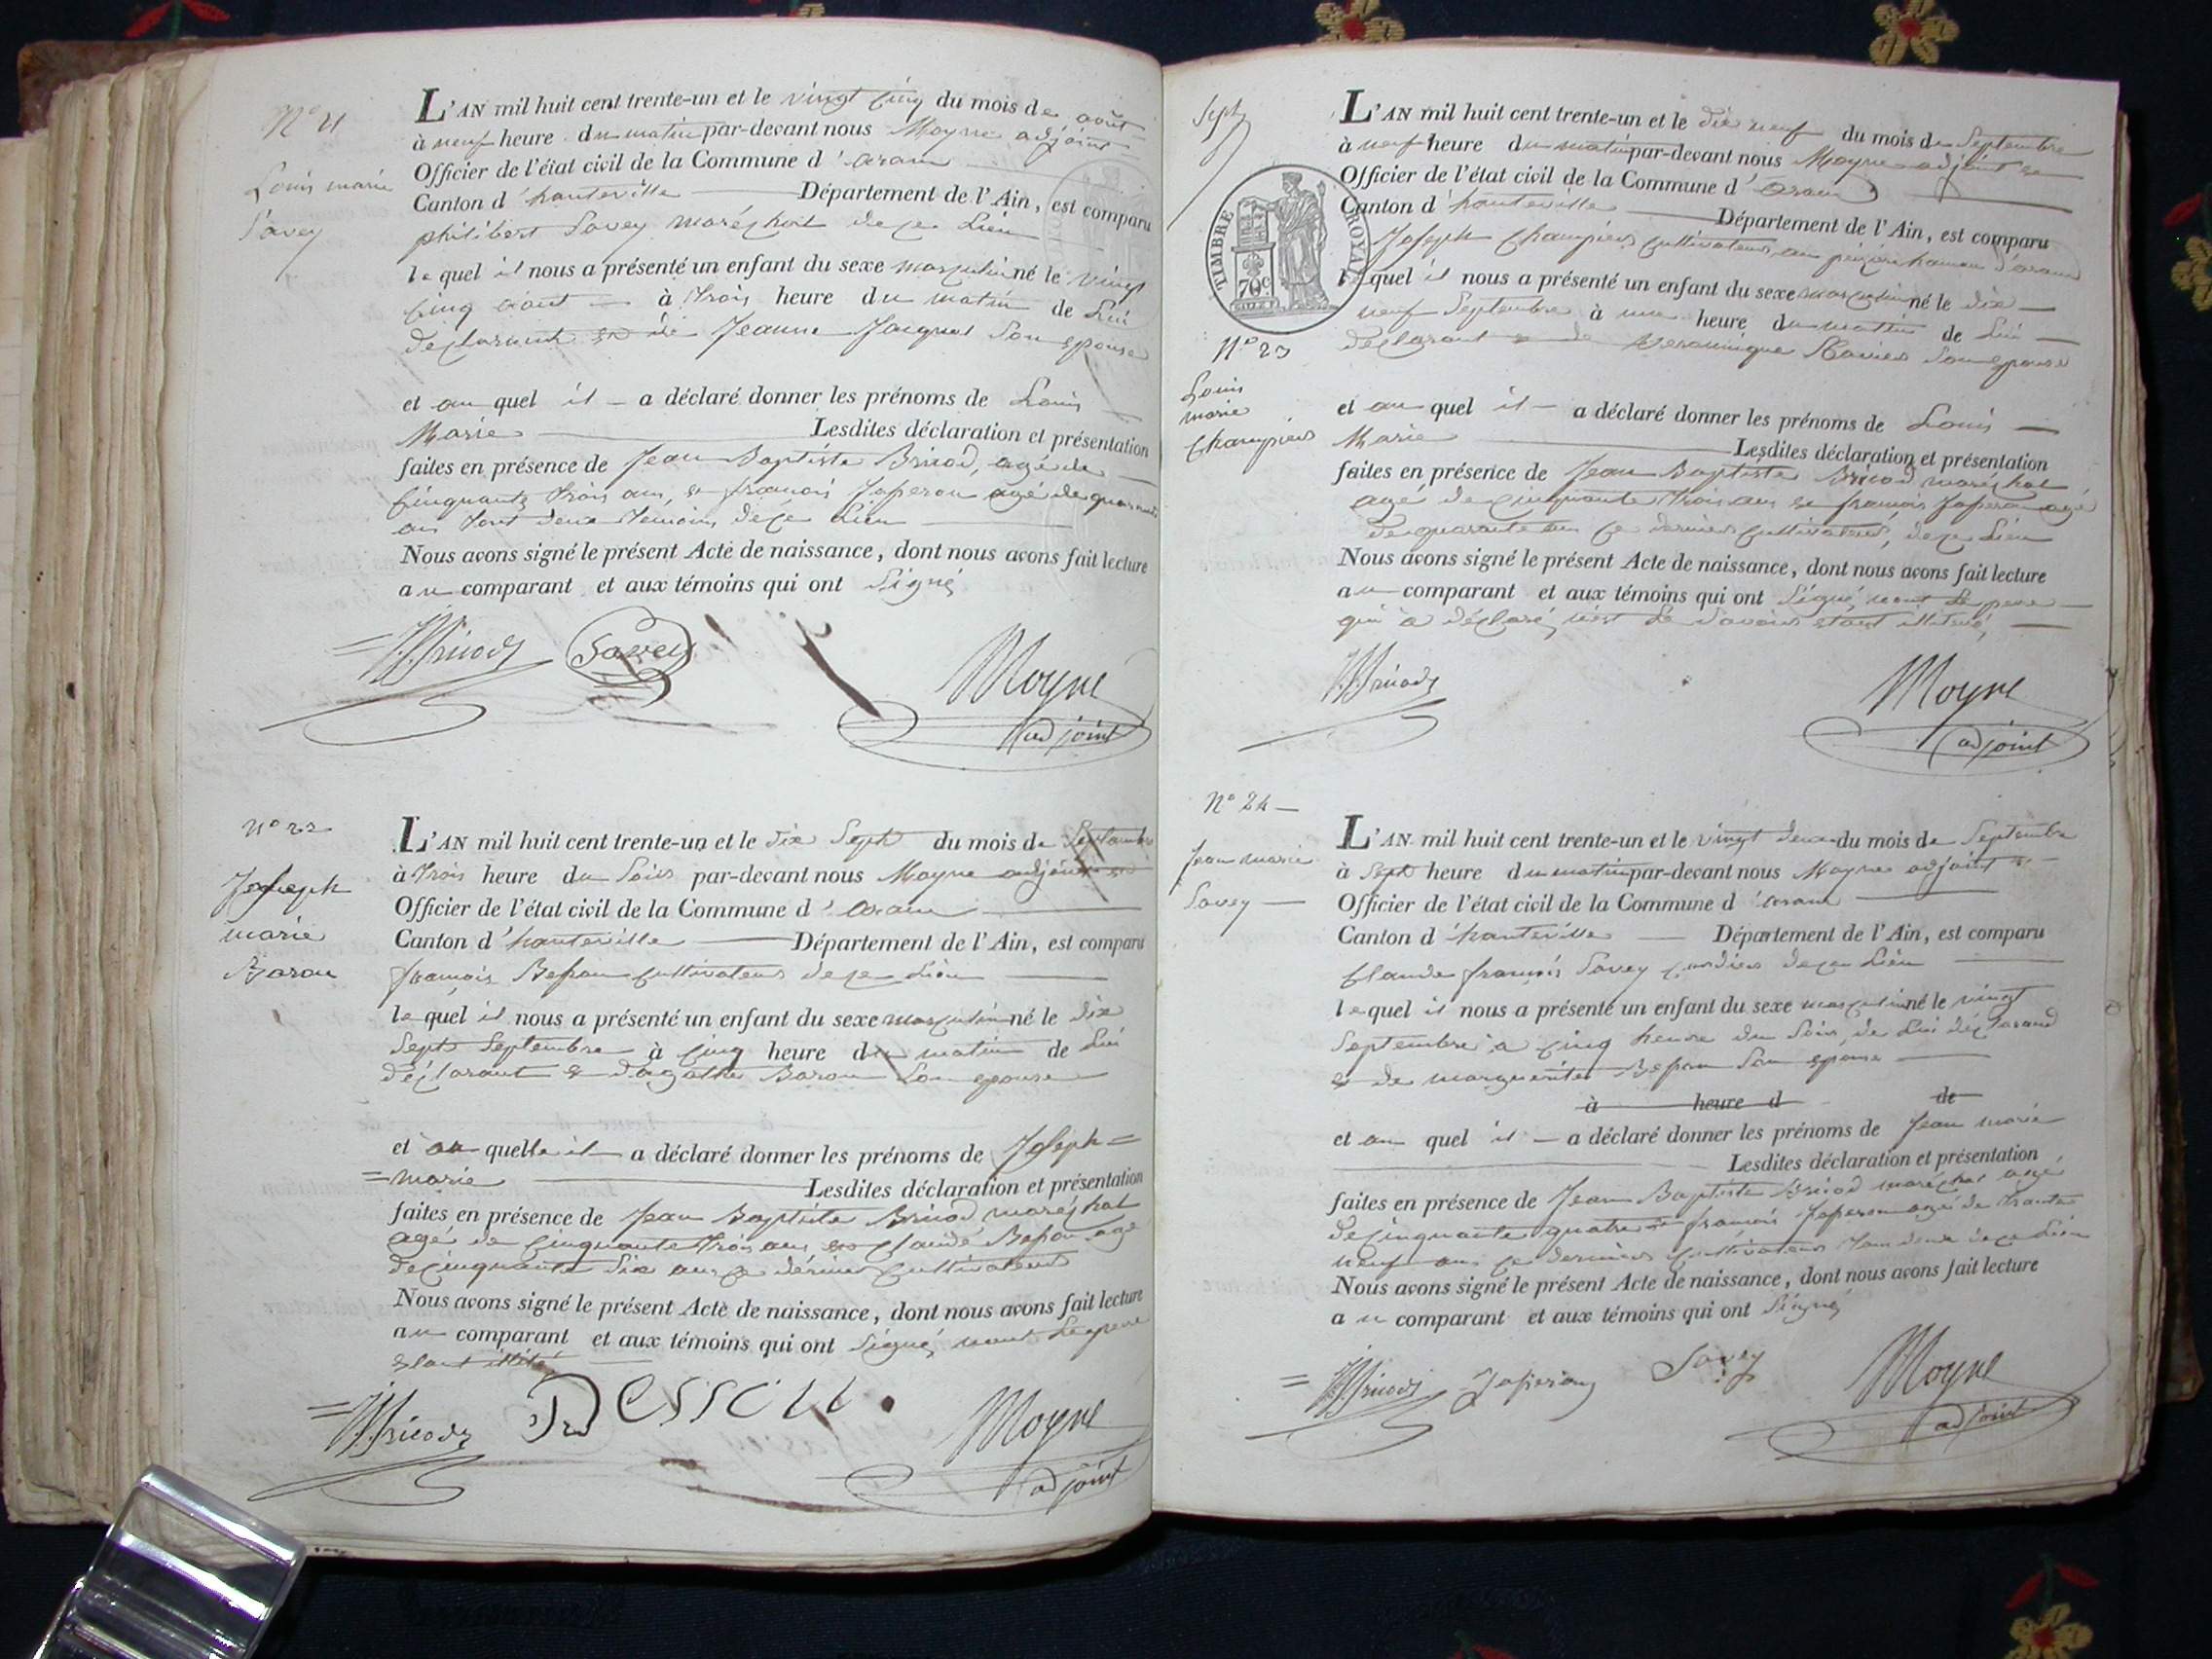 N° 21
Louis marie
Savey
L'AN mil huit cent trente-un et le vingt cinq du mois de août
à neuf heure du matin par-devant nous Moyne adjoint
Officier de l'état civil de la Commune d'aranc
Canton d'hauteville Département de l'Ain, est comparu
philibert Savey maréchal de ce Lieu
le quel il nous a présenté un enfant du sexe masculin né le vingt
cinq aout à trois heure du matin de Lui
declarant et de Jeanne Jacquet Son epouse
et au quel il a déclaré donner les prénoms de Louis
Marie Lesdites déclaration et présentation
faites en présence de Jean Baptiste Bricod, agé de
Cinquante trois ans, et françois Japeron agé de quarante
ans tout deux temoins de ce Lieu
Nous avons signé le présent Acte de naissance, dont nous avons fait lecture
au comparant et aux témoins qui ont Signé
JBBricod Savey Moyne
adjoint
n° 22
Joseph
marie
Baron
L'AN mil huit cent trente-un et le dix Sept du mois de Septembre
à trois heure du Soir par-devant nous Moyne adjoint et
Officier de l'état civil de la Commune d'aranc
Canton d'hauteville Département de l'Ain, est comparu
françois cultivateur de ce Lieu
le quel il nous a présenté un enfant du sexe masculin né le dix
Sept Septembre à cinq heure du matin de Lui
déclarant et d'agathe Baron Son epouse
et au quelle il a déclaré donner les prénoms de Joseph =
= marie Lesdites déclaration et présentation
faites en présence de Jean Baptiste Bricod maréchal
agé de Cinquante trois ans et Claude agé
de cinquante Six ans ce dernier Cultivateur
Nous avons signé le présent Acte de naissance, dont nous avons fait lecture
au comparant et aux témoins qui ont Signé, le pere
etant
JBBricod Moyne
adjoint
Sept
TIMBRE ROYAL
70c
N° 23
Louis
marie
Champier
L'AN mil huit cent trente-un et le dix neuf du mois de Septembre
à neuf heure du matin par-devant nous Moyne adjoint et
Officier de l'état civil de la Commune d'aranc
Canton d'hauteville Département de l'Ain, est comparu
Joseph Champier cultivateur au hameau d'aranc
le quel il nous a présenté un enfant du sexe masculin né le dix
neuf Septembre à une heure du matin de Lui
declarant et de veronnique Son epouse
et au quel il a déclaré donner les prénoms de Louis
Marie Lesdites déclaration et présentation
faites en présence de Jean Baptiste Bricod maréchal
agé de cinquante trois ans et françois Japeron agé
de quarante ans ce dernier cultivateur, de ce Lieu
Nous avons signé le présent Acte de naissance, dont nous avons fait lecture
au comparant et aux témoins qui ont Signé, Le pere
qui à déclaré Le Savoir etant
JBBricod Moyne
adjoint
N° 24
Jean marie
Savey
L'AN mil huit cent trente-un et le vingt deux du mois de Septembre
à Sept heure du matin par-devant nous Moyne adjoint et
Officier de l'état civil de la Commune d'aranc
Canton d'hauteville Département de l'Ain, est comparu
Claude françois Savey de ce Lieu
le quel il nous a présenté un enfant du sexe masculin né le vingt
Septembre a cinq heure du Soir, de Lui déclarand
et de marguerite Son epouse
à heure d de
et au quel il a déclaré donner les prénoms de Jean marie
Lesdites déclaration et présentation
faites en présence de Jean Baptiste Bricod maréchal agé
de cinquante quatre et françois Japeron agé de trente
neuf ans ce dernier Cultivateur de ce Lieu
Nous avons signé le présent Acte de naissance, dont nous avons fait lecture
au comparant et aux témoins qui ont Signé
JBBricod Japeron Savey Moyne
adjoint